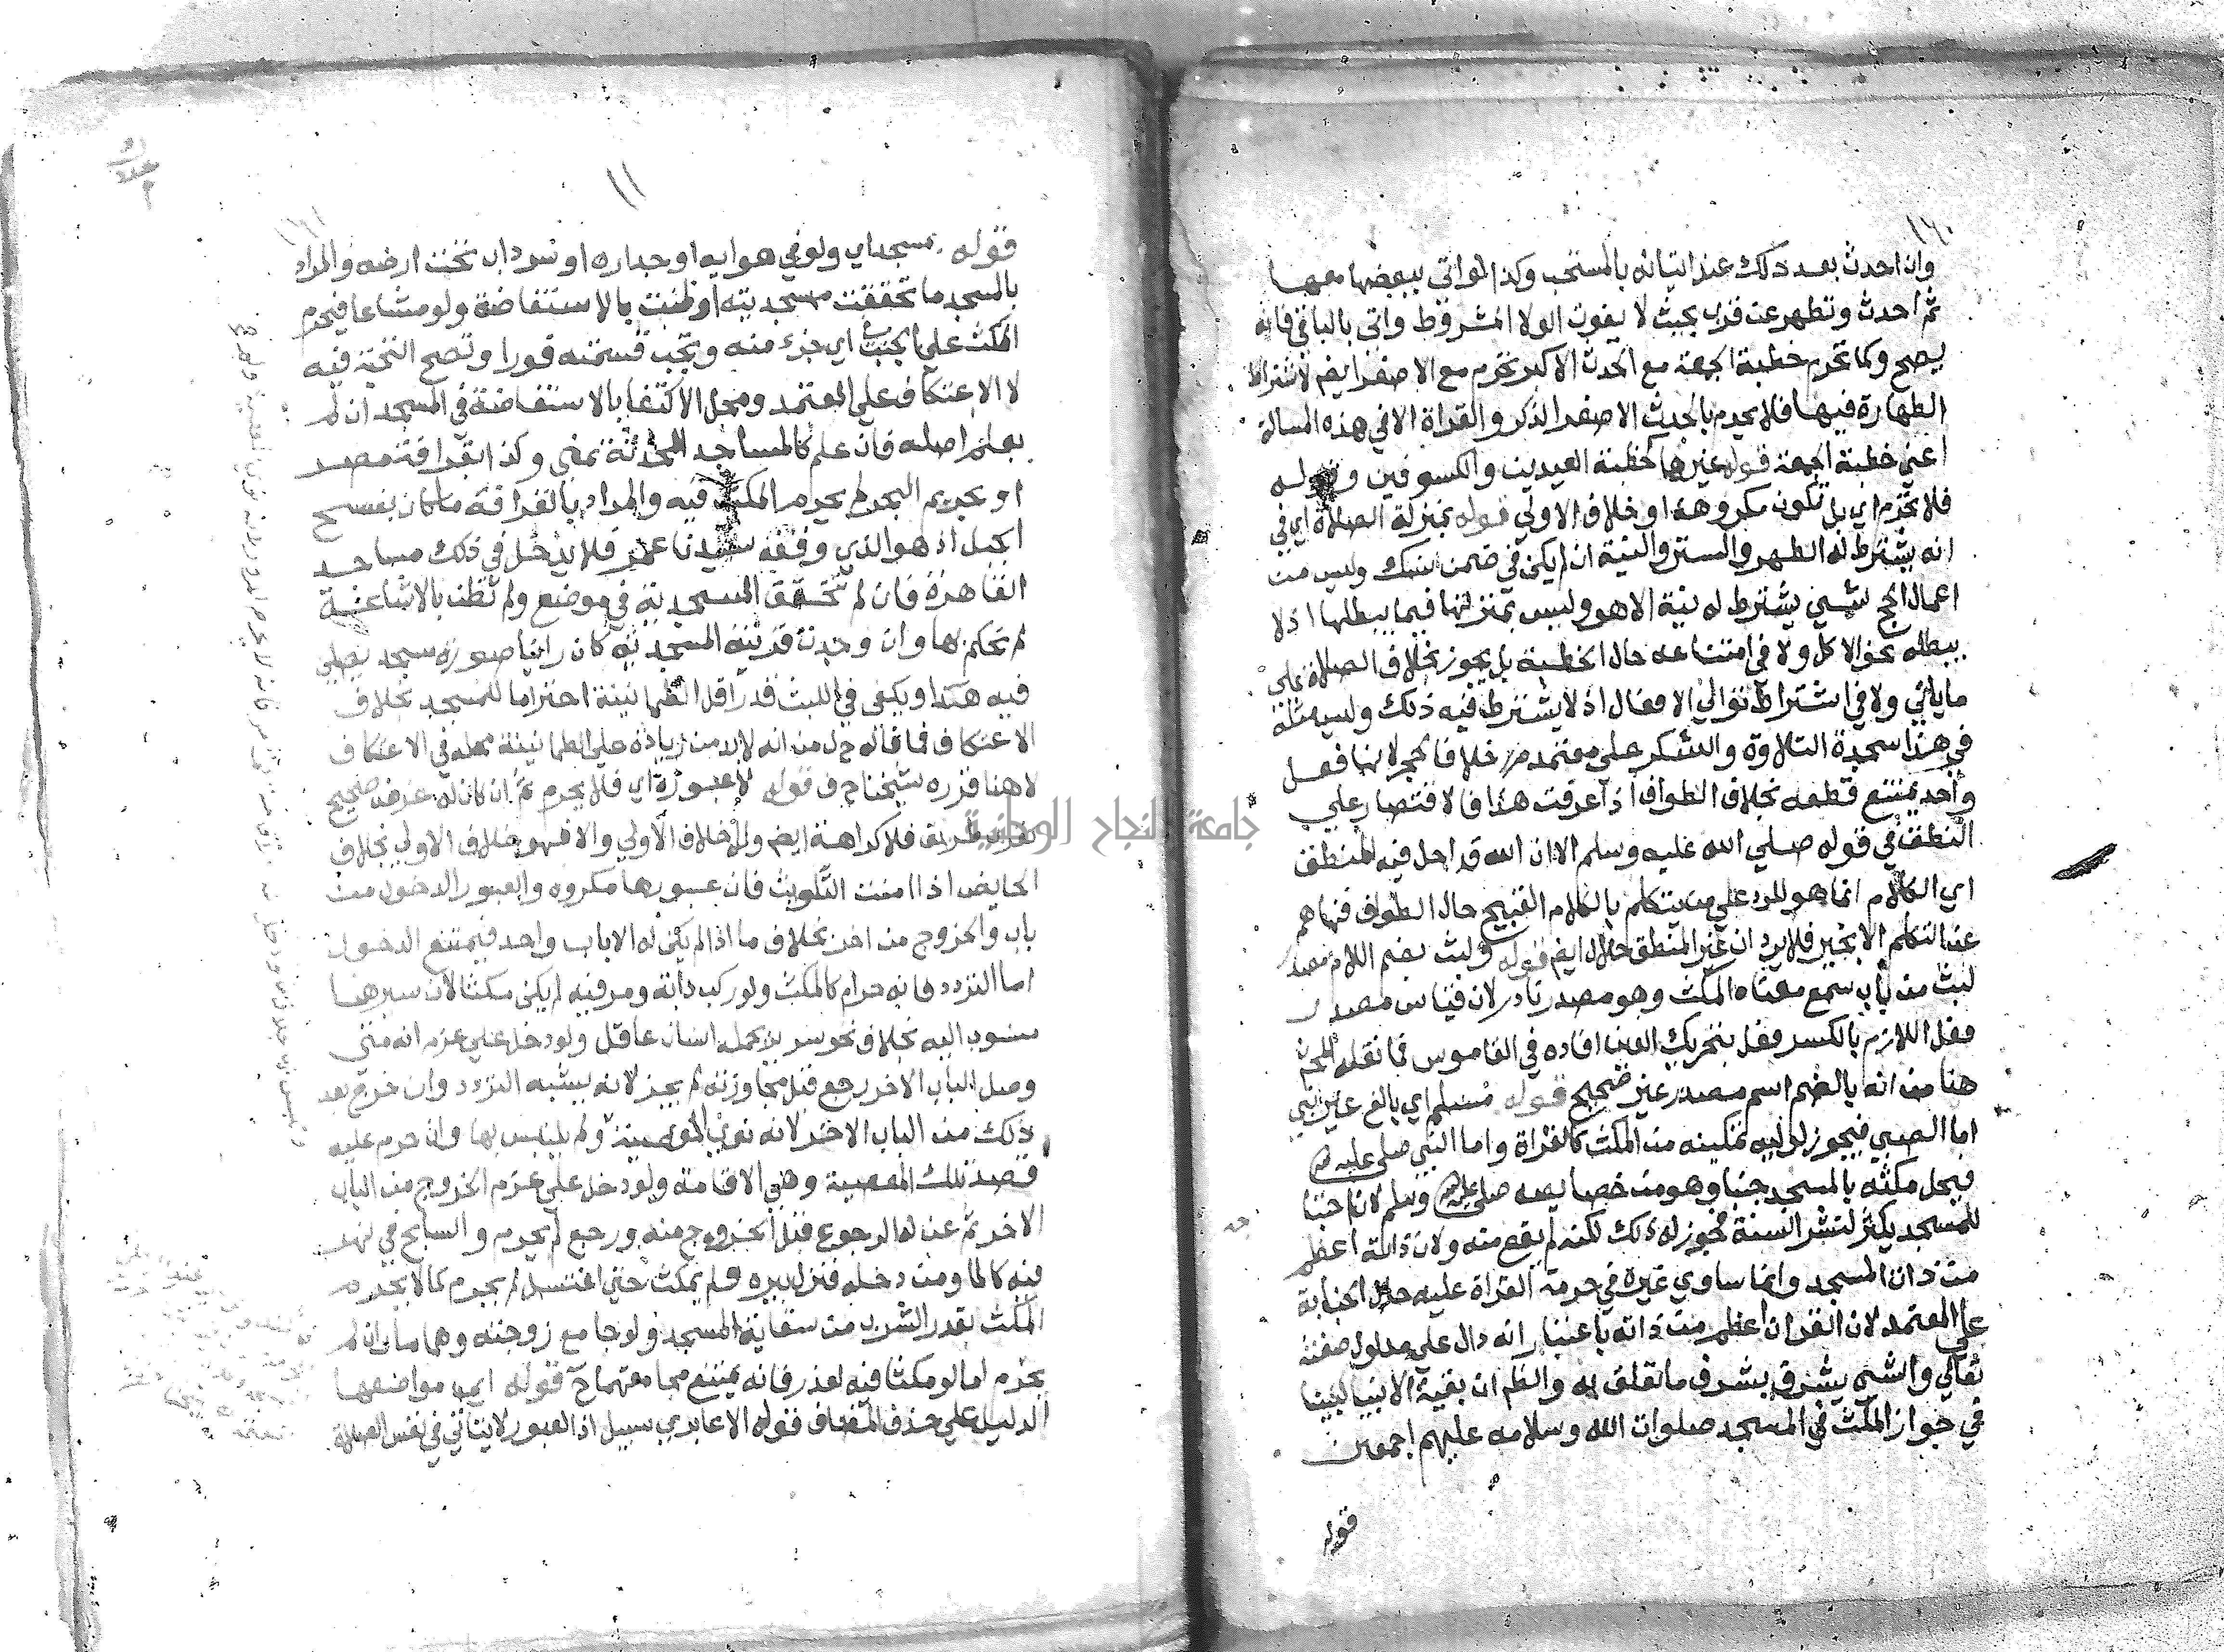 ١٤٠
وان احدث بعد ذلك عند اتيانه بالمستحب وكذا لو اتى ببعضها معها
ثم احدث وتطهر عن قرب بحيث لا يفوت الولا المشروط واتى بالباقي فانه
يصح وكما تحرم خطبة الجمعة مع الحدث الاكبر تحرم مع الاصغر ايضم لاشتراط
الطهارة فيها فلا يحرم بالحدث الاصغر الذكر والقراة الا في هذه المسالة
اعني خطبة الجمعة قوله غيرها كخطبة العيدين والكسوفين وقوله
فلا تحرم اي بل تكون مكروهة او خلاف الاولي قوله بمنزلة الصلاة اي في
انه يشترط له الطهر والستر والنية ان لم يكن في ضمن نسك وليس من
اعمال الحج شيئ يشترط له نية الا هو وليس بمنزلتها فيما يبطلها اذ لا
يبطله نحو الاكل ولا في امتناعه حال الخطبة بل يجوز بخلاف الصلاة علي
ما ياتي ولا في اشتراط توالي الافعال اذ لا يشترط فيه ذلك وليس مثله
في هذا سجدة التلاوة والشكر علي معتمد مر خلافا لحجر لانها فعل
واحد يمتنع قطعه بخلاف الطواف اذا عرفت هذا فالاقتصار علي
النطق في قوله صلي الله عليه وسلم الا ان الله قد احل فيه المنطق
اي الكلام انما هو للرد علي من يتكلم بالكلام القبيح حال الطواف فنهاهم
عن التكلم الا بخير فلا يرد ان غير المنطق حلال ايضم قوله ولبث بضم اللام مصدر
لبث من باب سمع معناه المكث وهو مصدر نادر لان قياس مصدر
فعل اللازم بالكسر فعل بتحريك العين افاده في القاموس فما نقله المحشي
هنا من انه بالضم اسم مصدر غير صحيح قوله مسلم اي بالغ غير نبي
اما الصبي فيجوز لوليه تمكينه من المكث كالقراة واما النبي صلى عليه
فيحل مكثه بالمسجد جنبا وهو من خصايصه صلى عليه وسلم لانه
للمسجد يكثر لنشر السنة فجوز له ذلك لكنه لم يقع منه ولان ذاته اعظم
من ذات المسجد وانما ساوي غيره في حرمة القراة عليه حال الجنابة
علي المعتمد لان القران اعظم من ذاته باعتبار انه دال علي مدلول صفته
تعالي والشئ يشرف بشرف ما تعلق به والظم ان بقية الانبيا كنبينا
في جواز المكث في المسجد صلوات الله وسلامه عليهم اجمعين
قوله
١١
١٤١
قوله بمسجد اي ولو في هوايه او جداره او سرداب تحت ارضه والمراد
بالمسجد ما تحققت مسجديته او ظنت بالاستفاضة ولو مشاعا فيحرم
المكث علي الجنب في اي جزء منه وتجب قسمته فورا وتصح التحية فيه
لا الاعتكاف علي المعتمد ومحل الاكتفا بالاستفاضة في المسجد ان لم
يعلم اصله فان علم كالمساجد المحدثة بمنى وكذا بقرافة مصر
او بحريم البحر لم يحرم المكث فيه والمراد بالقرافة ما كان بفسح
الجبل اذ هو الذي وقفه سيدنا عمر فلا يدخل في ذلك مساجد
القاهرة فان لم تتحقق المسجدية في موضع ولم تظن بالاشاعة
لم نحكم بها وان وجدت قرينة المسجدية كان راينا صورة مسجد يصلي
فيه هكذا ويكفي في اللبث قدر اقل الطمانينة احتراما للمسجد بخلاف
الاعتكاف فما قاله ح ل من انه لا بد من زيادة علي الطمانينة محله في الاعتكاف
لا هنا قرره شيخنا ح ف قوله لا عبوره اي فلا يحرم ثم ان كان له غرض صحيح
كقرب طريق فلا كراهة ايضم ولا خلاف الاولي والا فهو خلاف الاولى بخلاف
الحايض اذا امنت التلويث فان عبورها مكروه والعبور الدخول من
باب والخروج من اخر بخلاف ما اذا لم يكن له الا باب واحد فيمتنع الدخول
اما التردد فانه حرام كالمكث ولو ركب دابة ومر فيه لم يكن مكثا لان سيرها
منسوب اليه بخلاف نحو سرير يحمله انسان عاقل ولو دخل علي عزم انه متى
وصل الباب الاخر رجع قبل مجاوزته لم يجز لانه يشبه التردد وان خرج بعد
ذلك من الباب الاخر لانه نوى المعصية ولم يلتبس بها وان حرم عليه
قصد تلك المعصية وهي الاقامة ولو دخل علي عزم الخروج من الباب
الاخر ثم عن له الرجوع قبل الخروج منه ورجع لم يحرم والسابح في نهر
فيه كالمار ومن دخله فنزل بيره ولم يمكث حتى اغتسل لم يحرم كما لا يحرم
المكث بقدر الشرب من سقاية المسجد ولو جامع زوجته وهما ماران لم
يحرم اما لو مكثا فيه لعذر فانه يمتنع مجامعتهما ح قوله اي مواضعها
الدليل علي حذف المضاف قوله الا عابري سبيل اذ العبور لا يتاتي في نفس الصلاة
جامعة النجاح الوطنية